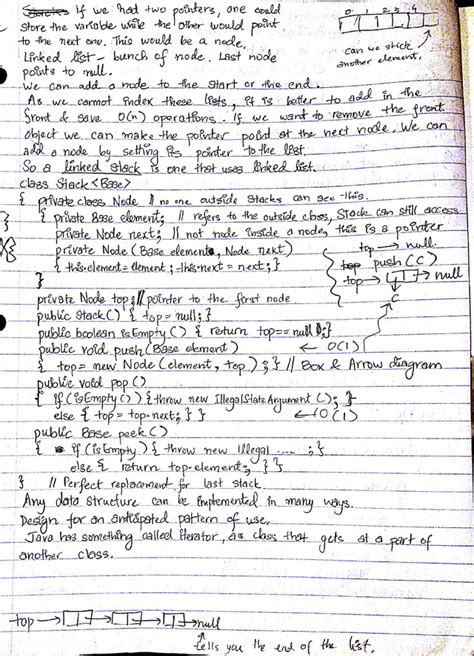 Stacks If we had two pointers, one could
store the variable while the other would point
to the next one. This would be a node.
Linked list - bunch of node. Last node
points to null.
0 1 2 3 4
can we stick
another element.
We can add a node to the start or the end.
As we cannot index these lists, it is better to add in the
front & save O(n) operations. If we want to remove the front
object we can make the pointer point at the next node. We can
add a node by setting its pointer to the list.
So a linked stack is one that uses linked list.
class Stack<Base>
{ private class Node // no one outside stacks can see this.
{ private Base element; // refers to the outside class, Stack can still access.
private Node next; // not node inside a node, this is a pointer
private Node (Base element, Node next)
{ this.element = element; this.next = next; }
}
top → null.
top push(C)
top → null
C
private Node top; // pointer to the first node
public Stack() { top = null; }
public boolean isEmpty() { return top == null; }
public void push(Base element) ← O(1)
{ top = new Node(element, top); } // Box & Arrow diagram
public void pop()
{ if (isEmpty()) { throw new IllegalStateArgument(); }
else { top = top.next; } } ← O(1)
public Base peek()
{ if (isEmpty) { throw new Illegal ..... ; }
else { return top.element; } }
} // Perfect replacement for last stack.
Any data structure can be implemented in many ways.
Design for an anticipated pattern of use.
Java has something called iterator, as class that gets at a part of
another class.
top → → → → null
tells you the end of the list.